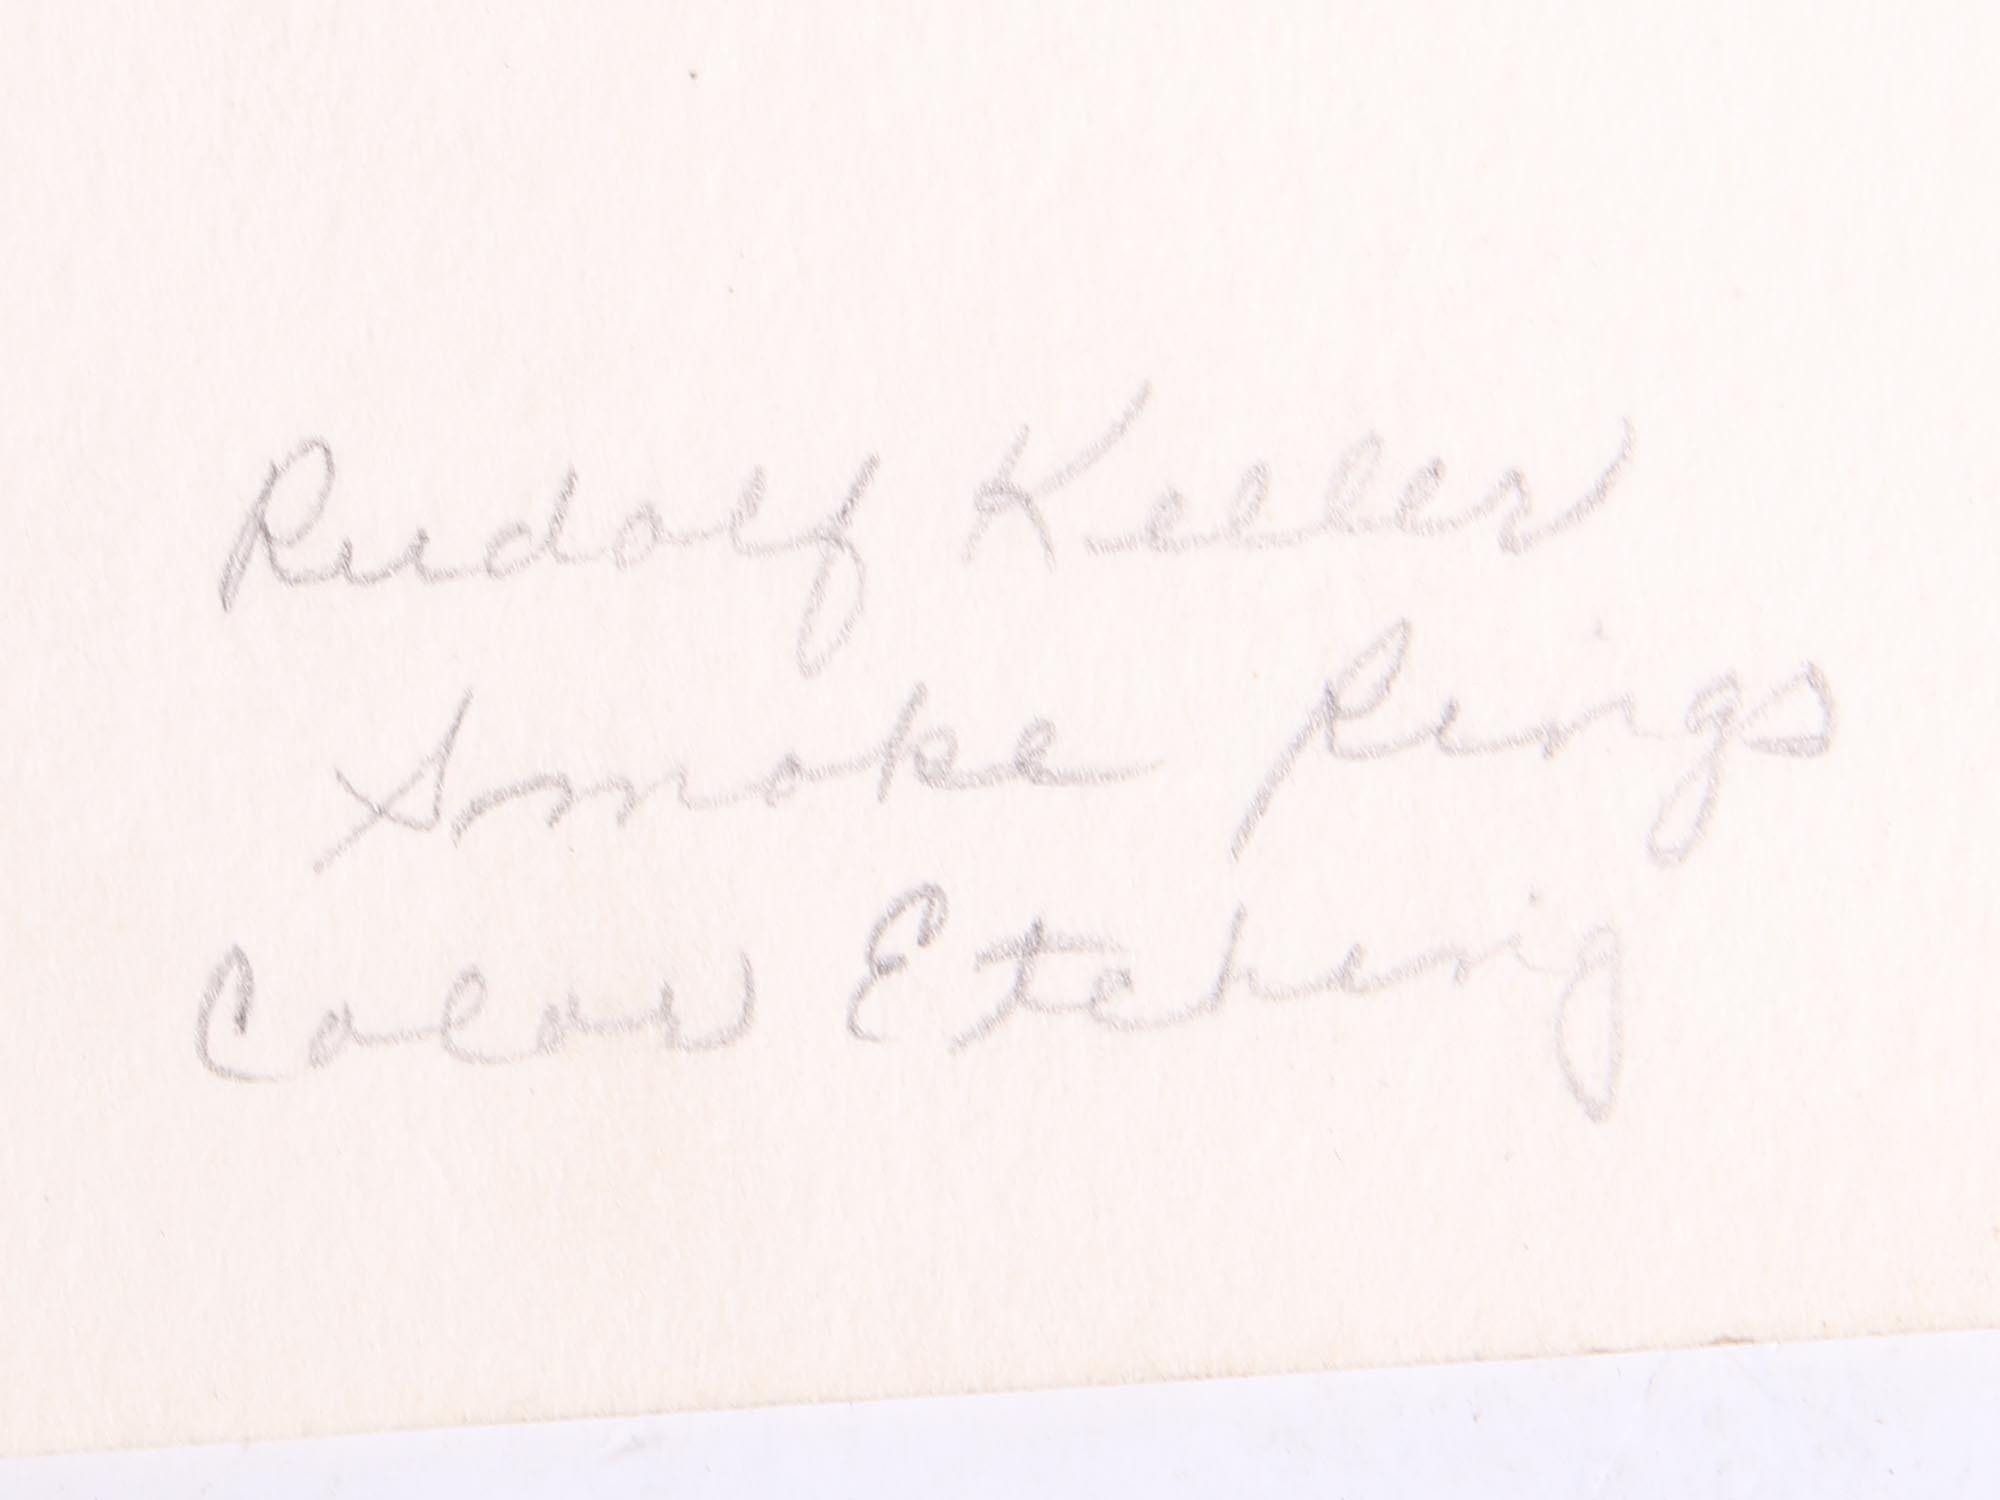 Rudolf Keller
Smoke Rings
Color Etching